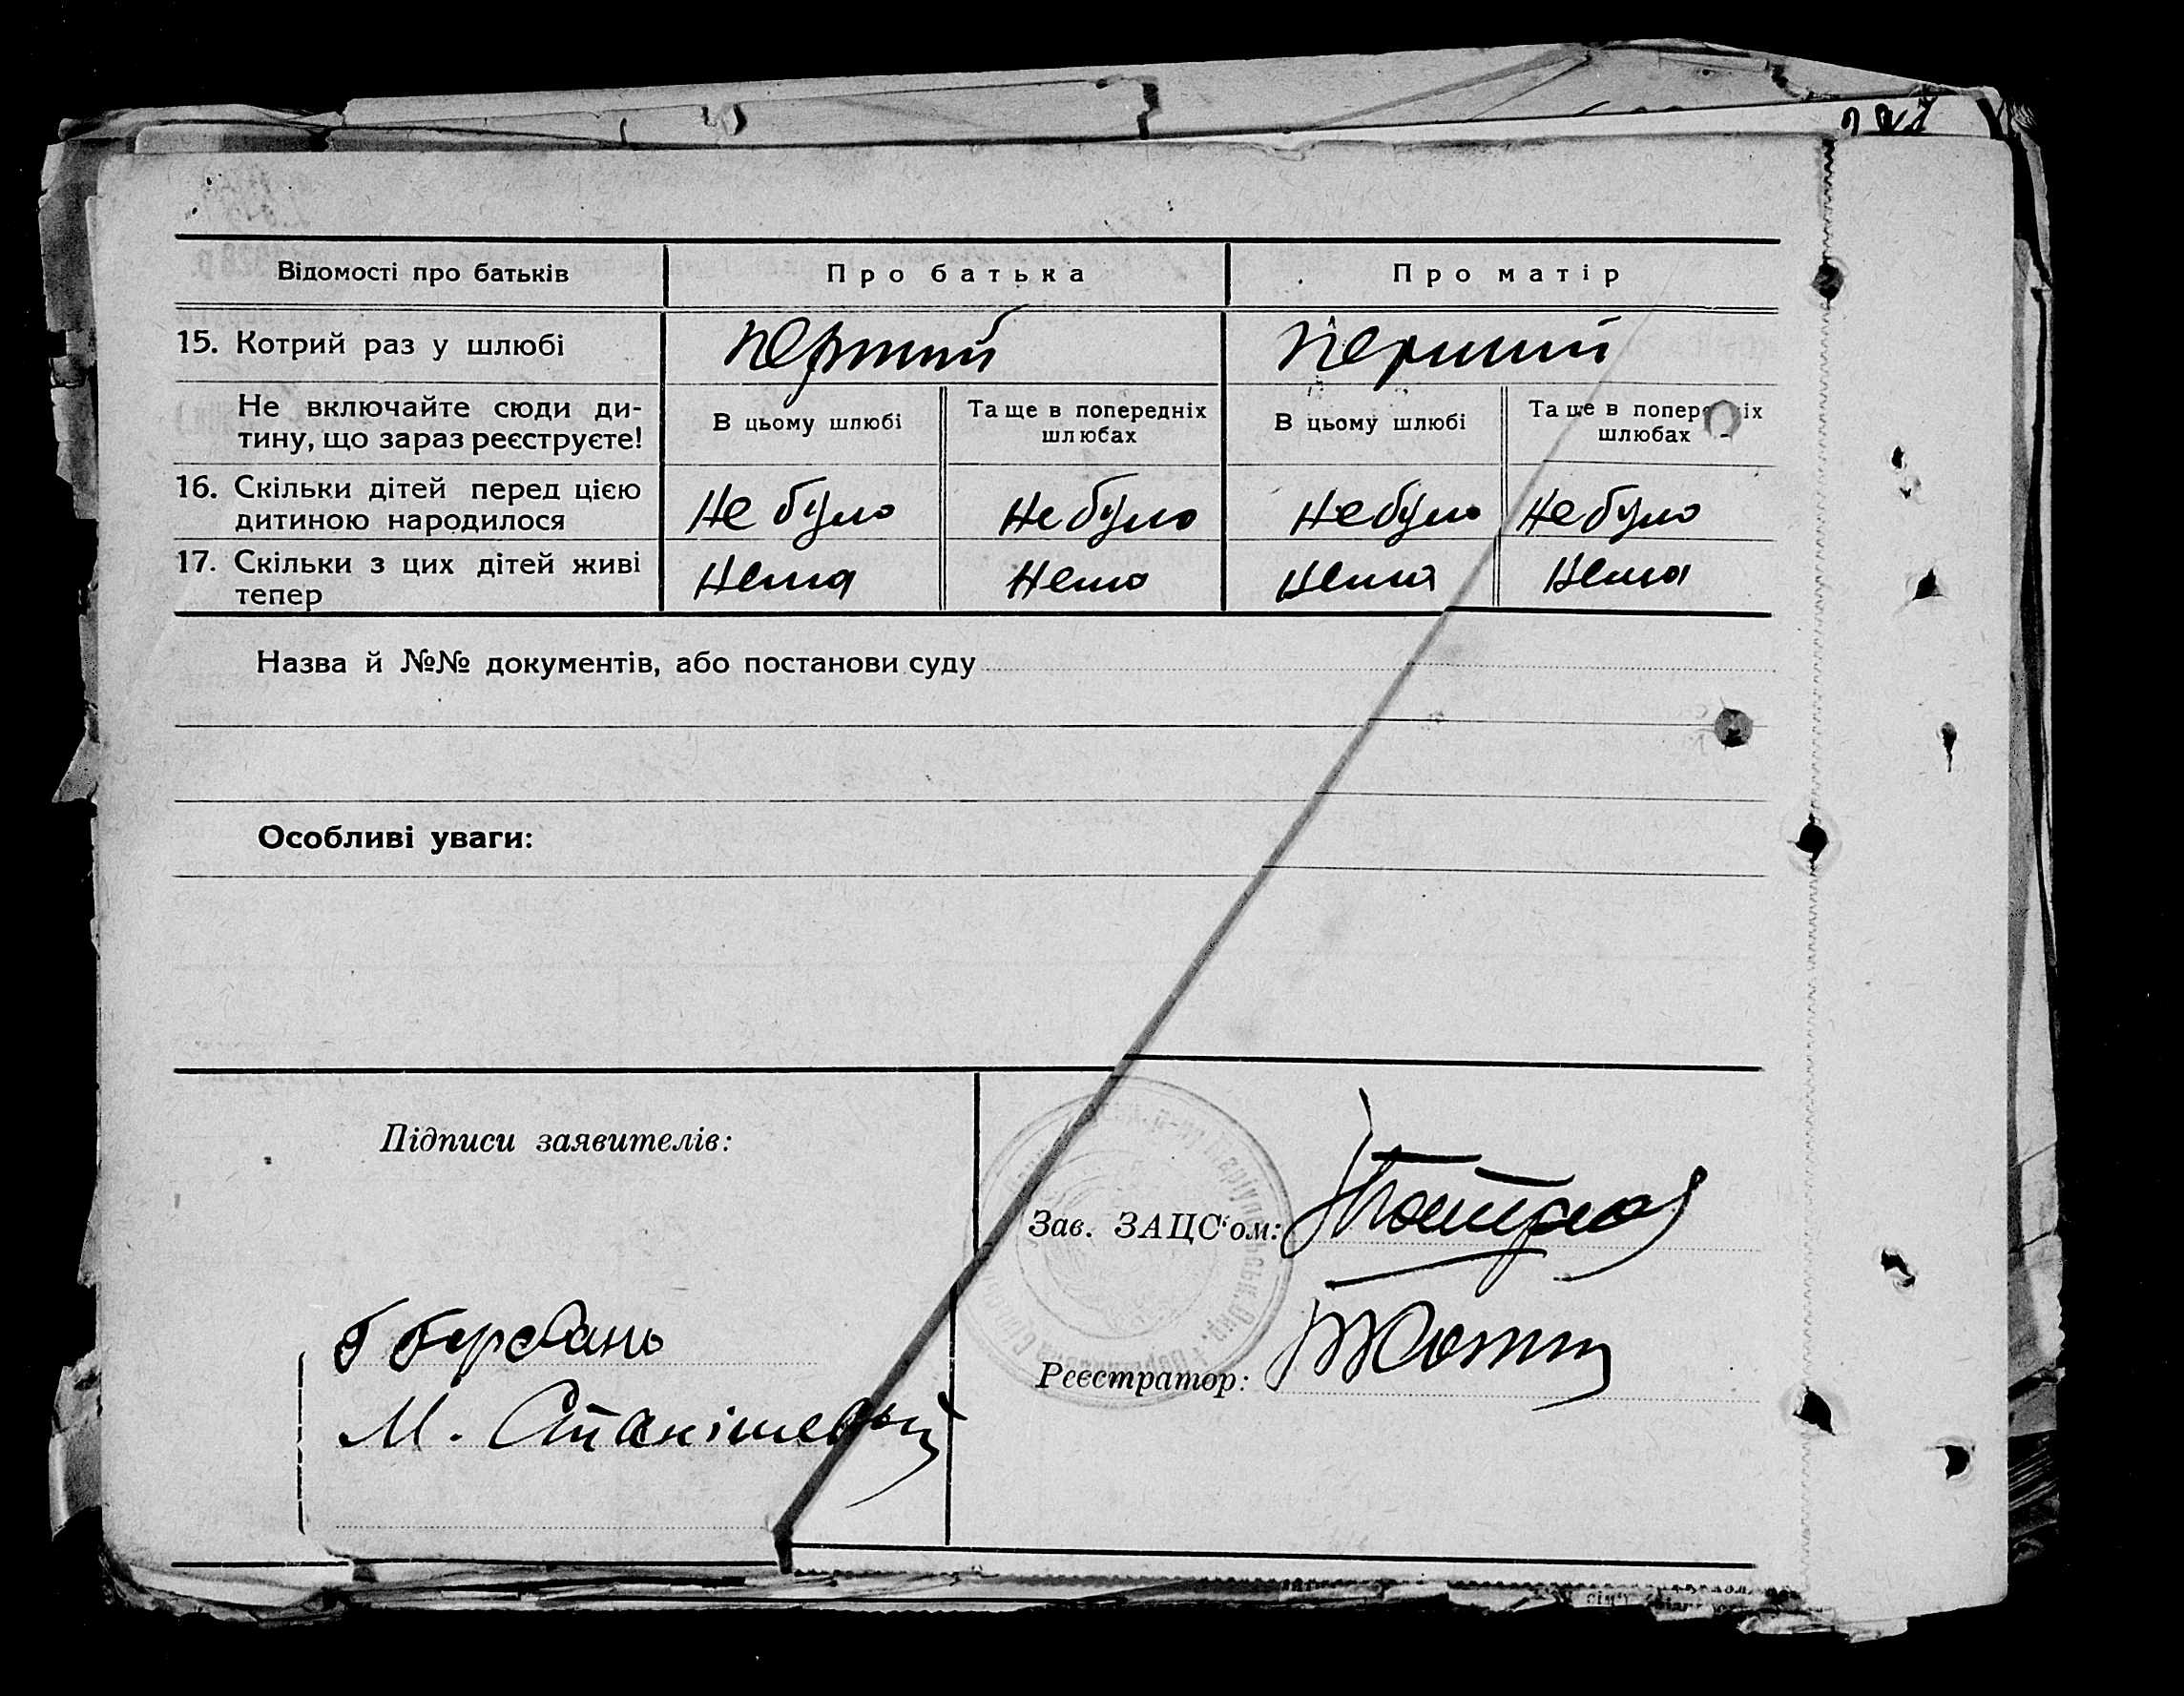 Відомості про батьків Про батька Про матір
15. Котрий раз у шлюбі перший перший
Не включайте сюди ди-
тину, що зараз реєструєте!
В цьому шлюбі
Та ще в попередніх
шлюбах
В цьому шлюбі
Та ще в попередніх
шлюбах
16. Скільки дітей перед цією
дитиною народилося
Не було Не було Не було Не було
17. Скільки з цих дітей живі
тепер
Нема Нема Нема Нема
Назва й №№ документів, або постанови суду
Особливі уваги:
Підписи заявителів:
Зав. ЗАЦС‘ом:
Реєстратор:
М.